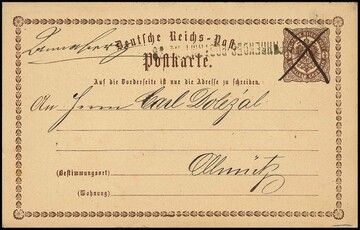 Deutsche Reichs-Post.
Postkarte.
Auf die Vorderseite ist nur die Adresse zu schreiben.
An Herrn Carl Doležal
(Bestimmungsort)
Ollmütz
(Wohnung)